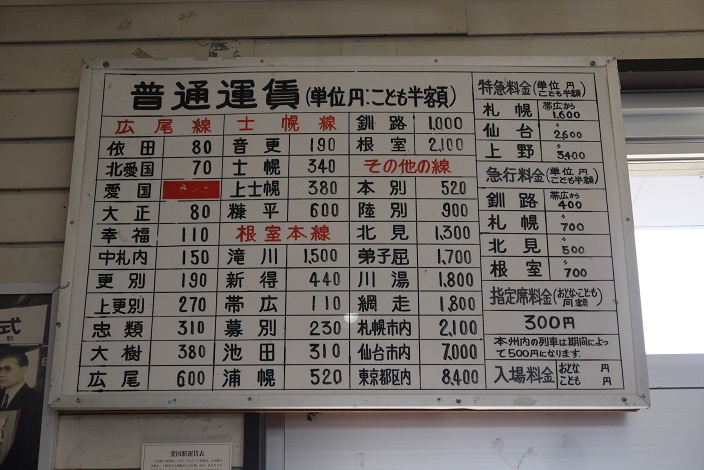 普通運賃(単位円:こども半額)
広尾線
依田 80
北愛国 70
愛国
大正 80
幸福 110
中札内 150
更別 190
上更別 270
忠類 310
大樹 380
広尾 600
士幌線
音更 190
士幌 340
上士幌 380
糠平 600
根室本線
滝川 1,500
新得 440
帯広 110
幕別 230
池田 310
浦幌 520
釧路 1,000
根室 2,100
その他の線
本別 520
陸別 900
北見 1,300
弟子屈 1,700
川湯 1,800
網走 1,800
札幌市内 2,100
仙台市内 7,000
東京都区内 8,400
特急料金(単位 円 こども半額)
札幌 帯広から 1,600
仙台 〃 2,600
上野 〃 3,400
急行料金(単位 円 こども半額)
釧路 帯広から 400
札幌 〃 700
北見 〃 500
根室 〃 700
指定席料金(おとな・こども 同額)
300円
本州内の列車は期間によっ
て500円になります.
入場料金 おとな 円
こども 円
式
愛国駅運賃表